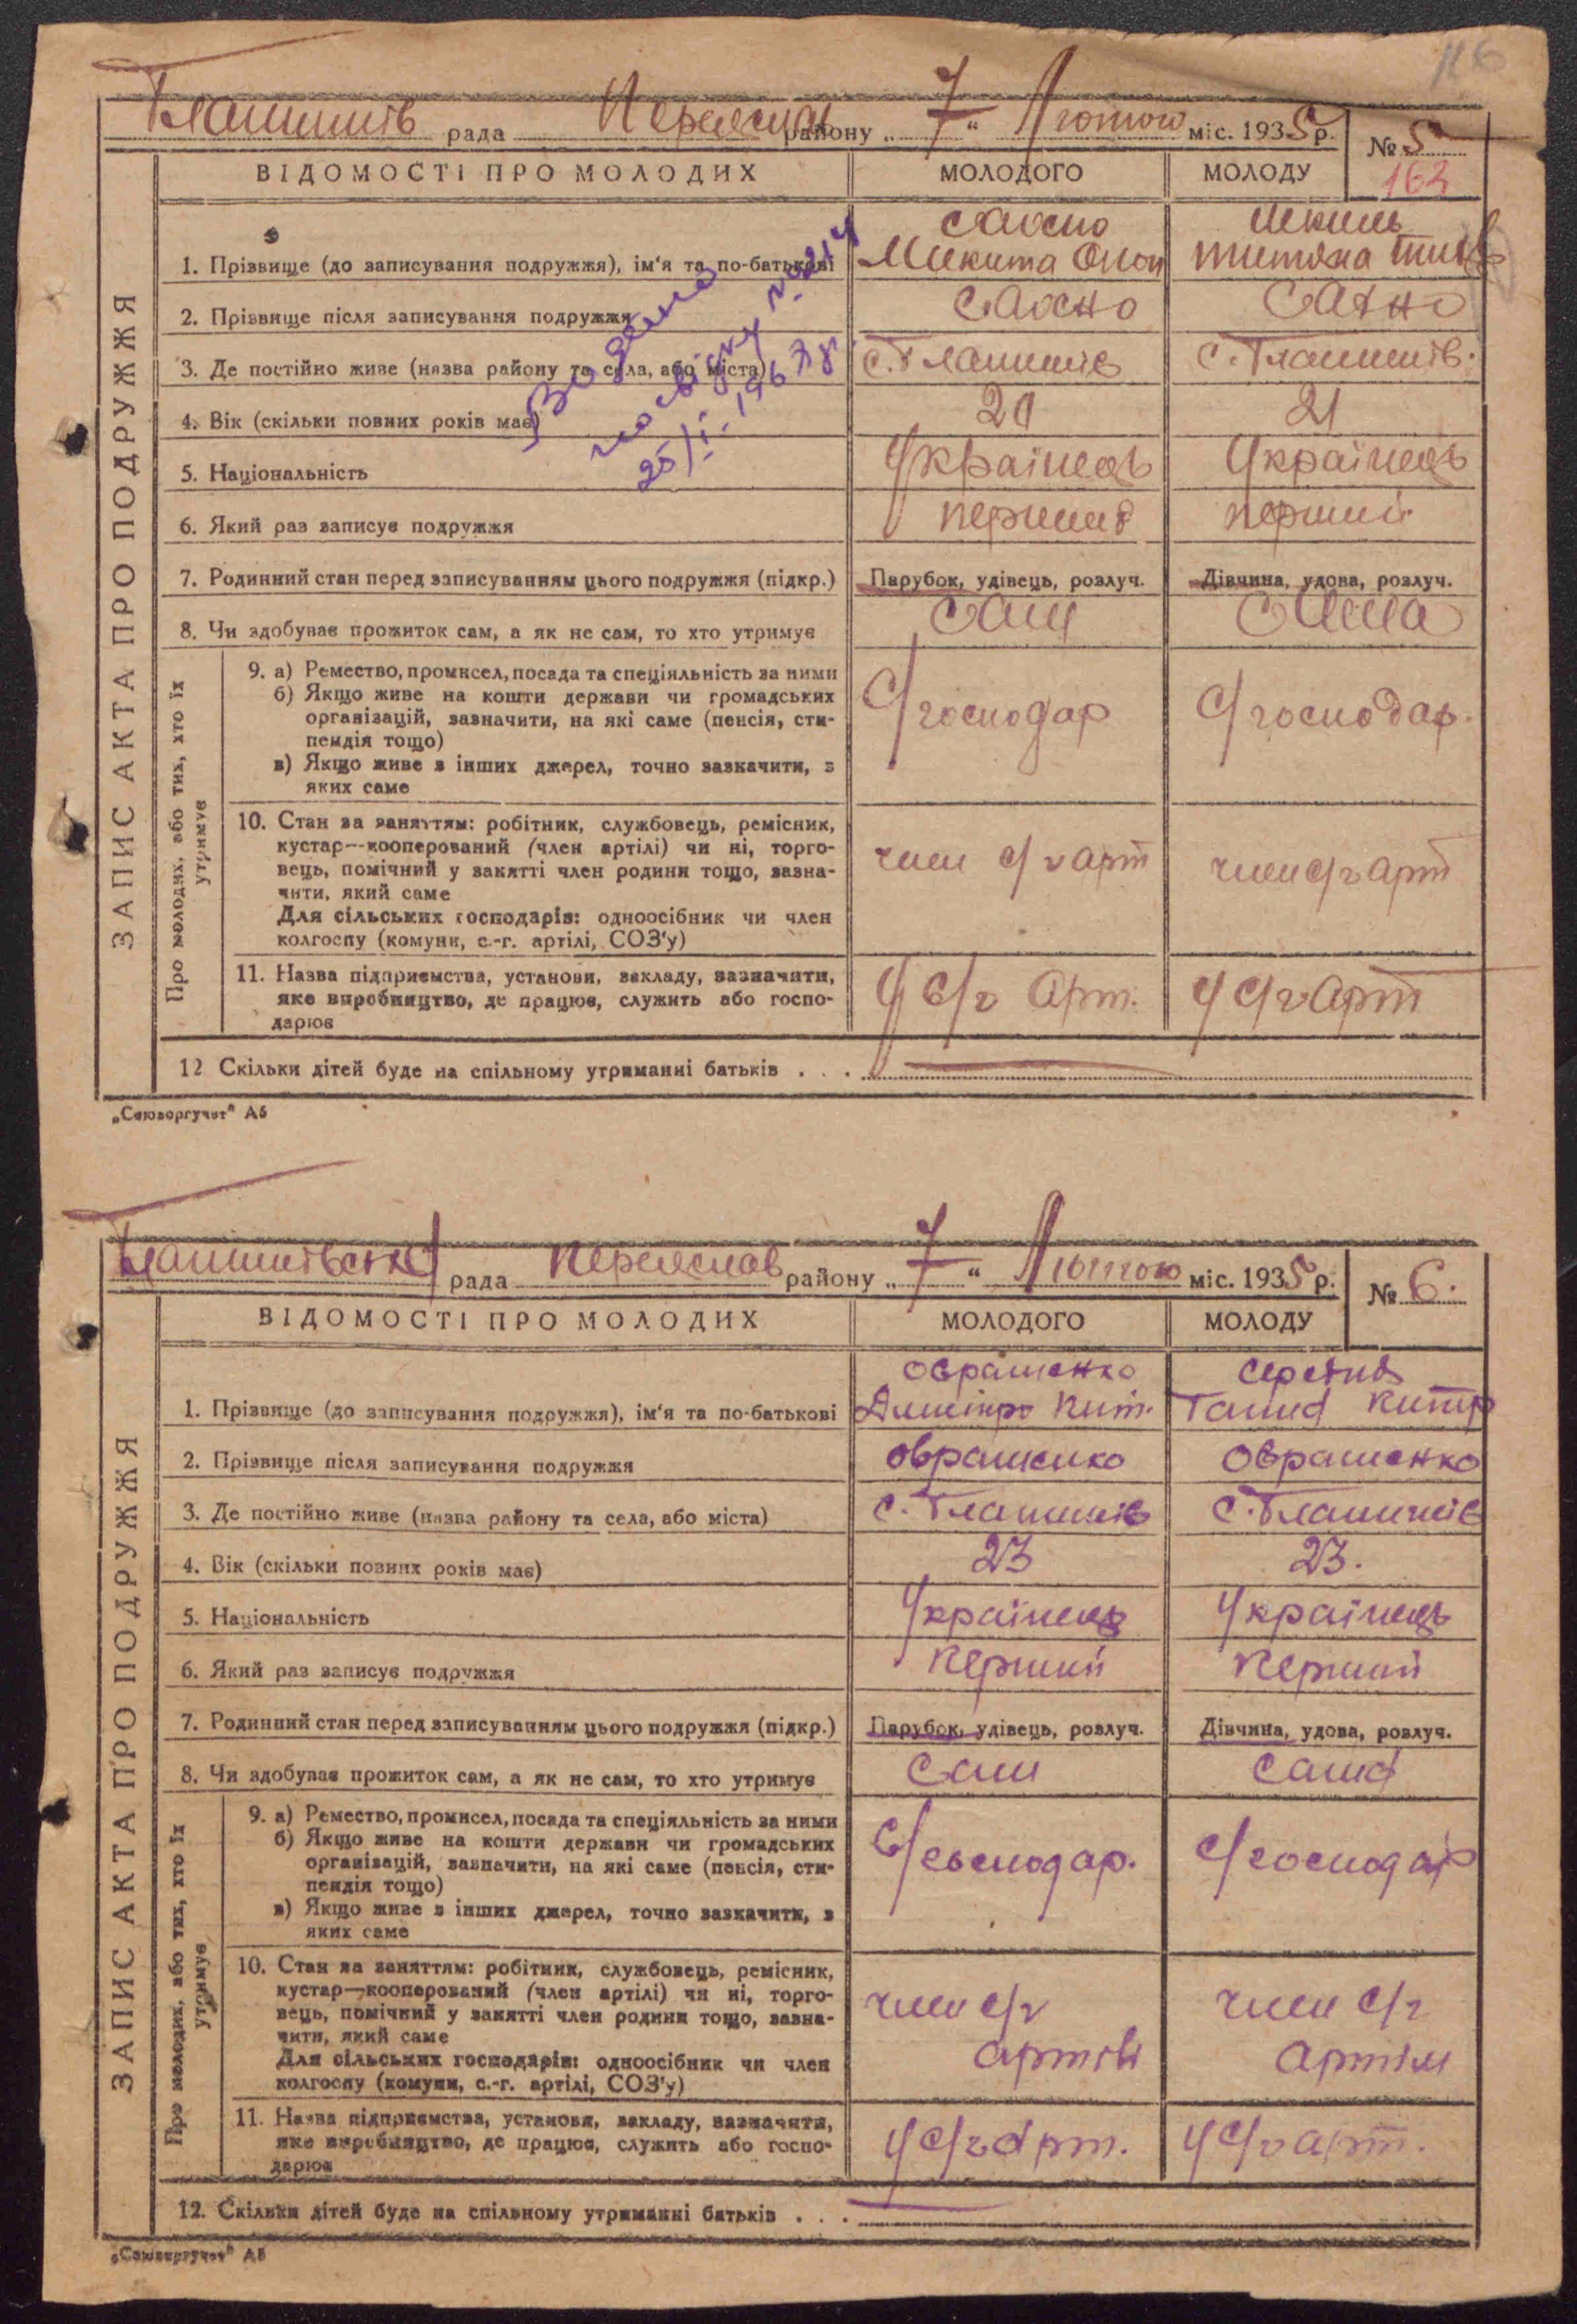 116
рада Переяслав району „ 7 “ Лютого міс. 1935 р.
№ 5
163
ВІДОМОСТІ ПРО МОЛОДИХ МОЛОДОГО МОЛОДУ
ЗАПИС АКТА ПРО ПОДРУЖЖЯ
1. Прізвище (до записування подружжя), ім'я та по-батькові
Микита
2. Прізвище після записування подружжя
3. Де постійно живе (назва району та села, або міста)
4. Вік (скільки повних років має) 21
5. Національність Українець Українець
6. Який раз записує подружжя перший перший
7. Родинний стан перед записуванням цього подружжя (підкр.) Парубок, удівець, розлуч. Дівчина, удова, розлуч.
8. Чи здобуває прожиток сам, а як не сам, то хто утримує сам сама
Про молодих, або тих, хто їх утримує
9. а) Ремество, промисел, посада та спеціяльність за ними
б) Якщо живе на кошти держави чи громадських
організацій, зазначити, на які саме (пенсія, сти-
пендія тощо)
в) Якщо живе з інших джерел, точно зазначити, з
яких саме
с/господар с/господар.
10. Стан за заняттям: робітник, службовець, ремісник,
кустар—кооперований (член артілі) чи ні, торго-
вець, помічний у занятті член родини тощо, зазна-
чити, який саме
Для сільських господарів: одноосібник чи член
колгоспу (комуни, с.-г. артілі, СОЗ'у)
член с/г арт член с/г арт
11. Назва підприємства, установи, закладу, зазначити,
яке виробництво, де працює, служить або госпо-
дарює
у с/г арт. у с/г арт
12 Скільки дітей буде на спільному утриманні батьків . . .
Видано
25/I-1967 р
„Союзоргучет“ А5
рада Переяслав району „ 7 “ Лютого міс. 1935 р.
№ 6.
ВІДОМОСТІ ПРО МОЛОДИХ МОЛОДОГО МОЛОДУ
ЗАПИС АКТА ПРО ПОДРУЖЖЯ
1. Прізвище (до записування подружжя), ім'я та по-батькові
Овраменко
Дмитро
2. Прізвище після записування подружжя Овраменко Овраменко
3. Де постійно живе (назва району та села, або міста)
4. Вік (скільки повних років має) 23 23.
5. Національність Українець Українець
6. Який раз записує подружжя Перший Перший
7. Родинний стан перед записуванням цього подружжя (підкр.) Парубок, удівець, розлуч. Дівчина, удова, розлуч.
8. Чи здобуває прожиток сам, а як не сам, то хто утримує сам сама
Про молодих, або тих, хто їх утримує
9. а) Ремество, промисел, посада та спеціяльність за ними
б) Якщо живе на кошти держави чи громадських
організацій, зазначити, на які саме (пенсія, сти-
пендія тощо)
в) Якщо живе з інших джерел, точно зазначити, з
яких саме
с/господар. с/господар
10. Стан за заняттям: робітник, службовець, ремісник,
кустар—кооперований (член артілі) чи ні, торго-
вець, помічний у занятті член родини тощо, зазна-
чити, який саме
Для сільських господарів: одноосібник чи член
колгоспу (комуни, с.-г. артілі, СОЗ'у)
член с/г член с/г
артілі артіли
11. Назва підприємства, установи, закладу, зазначити,
яке виробництво, де працює, служить або госпо-
дарює
у с/г арт. у с/г арт.
12. Скільки дітей буде на спільному утриманні батьків . . .
„Союзоргучет“ А5